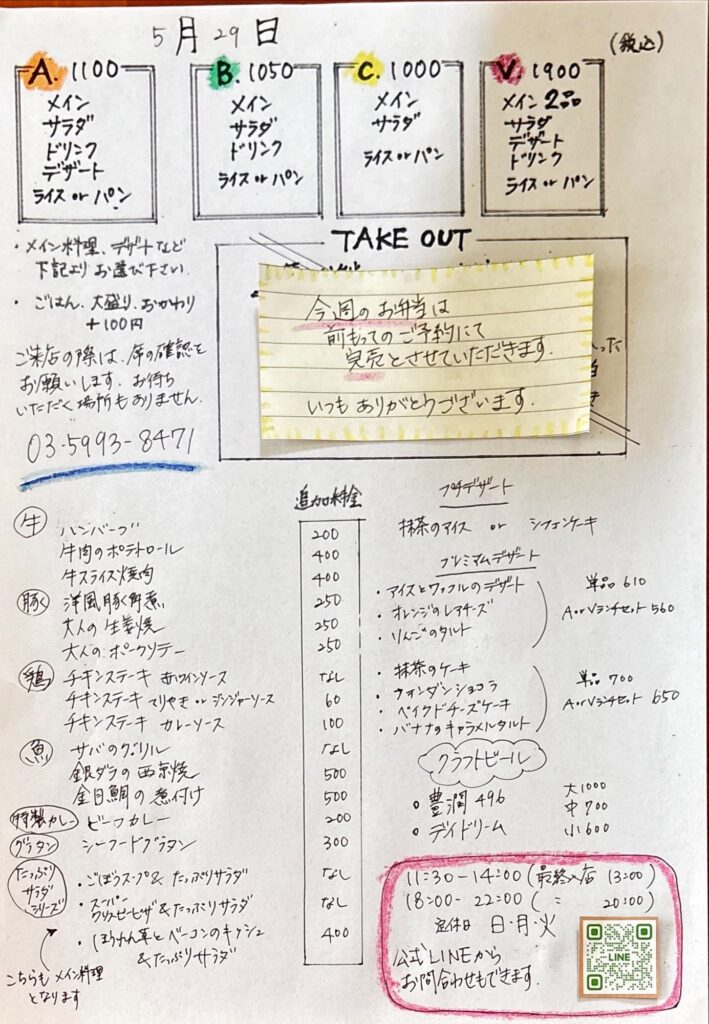 5月29日
(税込)
A. 1100
メイン
サラダ
ドリンク
デザート
ライス or パン
B. 1050
メイン
サラダ
ドリンク
ライス or パン
C. 1000
メイン
サラダ
ライス or パン
V. 1900
メイン 2品
サラダ
デザート
ドリンク
ライス or パン
・メイン料理、デザートなど
下記より お選び下さい.
・ごはん、大盛り、おかわり
+100円
ご来店の際は、席の確認を
お願いします. お待ち
いただく場所もありません.
03-5993-8471
TAKE OUT
今週のお弁当は
前もってのご予約にて
完売とさせていただきます.
いつもありがとうございます.
追加料金
牛
ハンバーグ 200
牛肉のポテトロール 400
牛スライス焼肉 400
豚
洋風豚角煮 250
大人の生姜焼 250
大人のポークソテー 250
鶏
チキンステーキ 赤ワインソース なし
チキンステーキ テリヤキ or ジンジャーソース 60
チキンステーキ カレーソース 100
魚
サバのグリル なし
銀ダラの西京焼 500
金目鯛の煮付け 500
特製カレー ビーフカレー 200
グラタン シーフードグラタン 300
たっぷり
サラダ
シリーズ
・ごぼうスープ & たっぷりサラダ なし
・スーパー
クリスピーピザ & たっぷりサラダ なし
・ほうれん草とベーコンのキッシュ
& たっぷりサラダ 400
こちらもメイン料理
となります
プチデザート
抹茶のアイス or シフォンケーキ
プレミアムデザート
・アイスとワッフルのデザート
・オレンジのレアチーズ
・りんごのタルト
単品 610
A or Vランチセット 560
・抹茶のケーキ
・フォンダンショコラ
・ベイクドチーズケーキ
・バナナのキャラメルタルト
単品 700
A or Vランチセット 650
クラフトビール
豊潤 496
デイドリーム
大 1000
中 700
小 600
11:30 - 14:00 (最終入店 13:00)
18:00 - 22:00 ( 〃 20:00)
定休日 日・月・火
公式LINEから
お問合わせもできます.
LINE